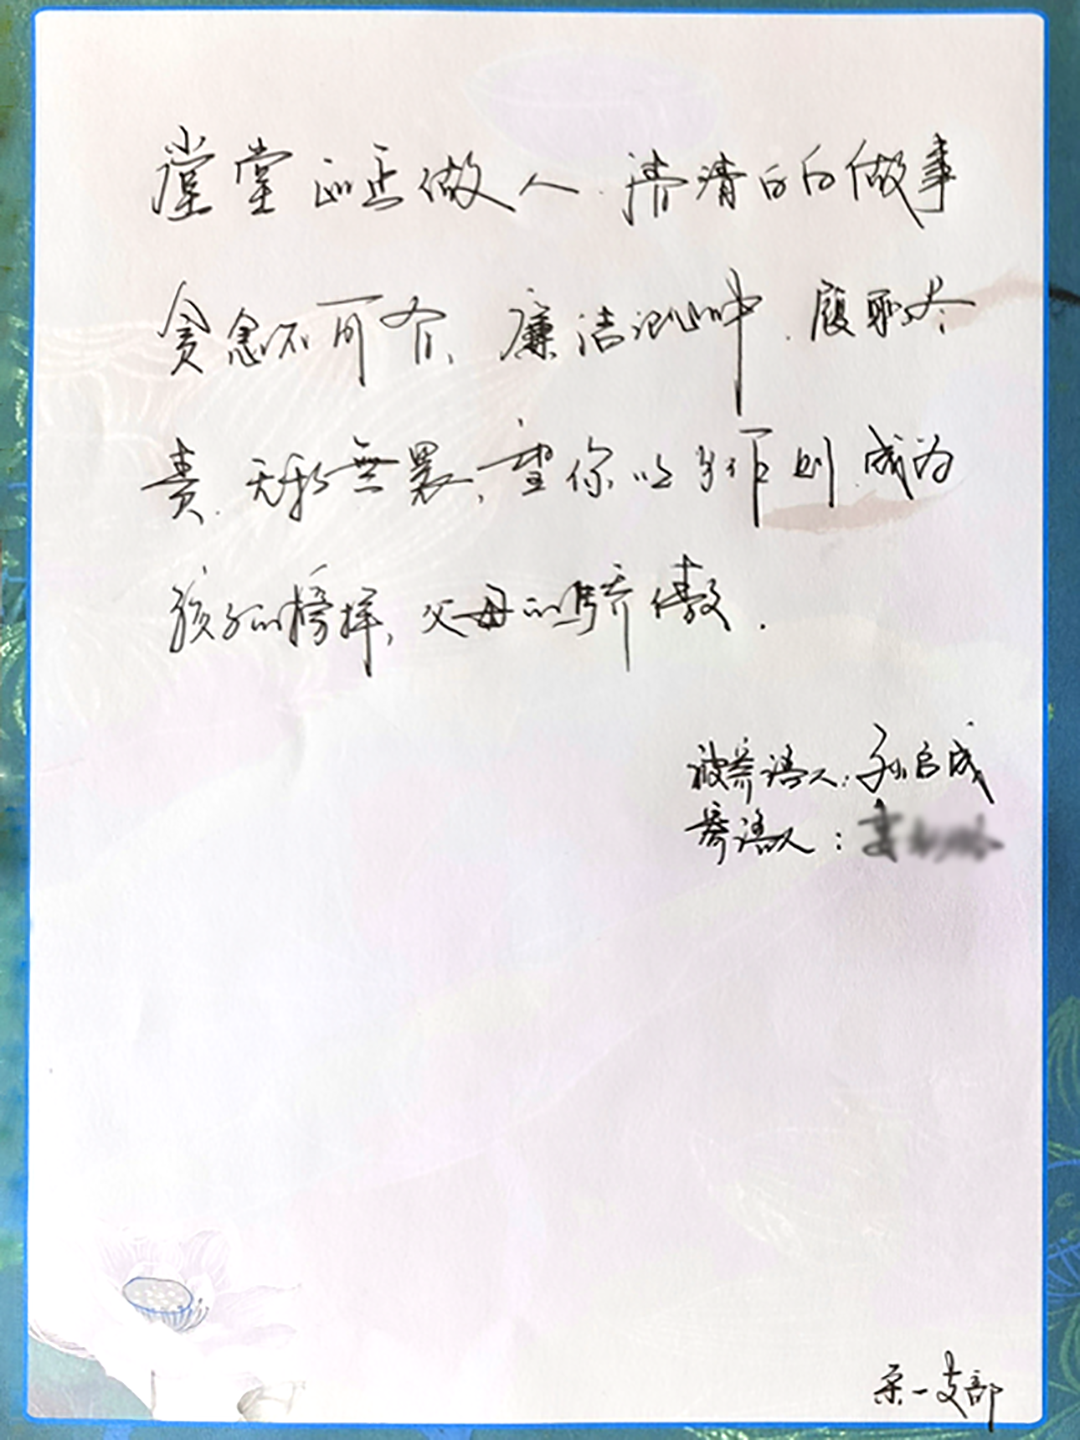 堂堂正正做人.清清白白做事
贪念不可有、廉洁记心中.履职尽
责.无私無畏,望你以身作则.成为
孩子的榜样,父母的骄傲.
被寄语人:孙启成
寄语人:
一支部